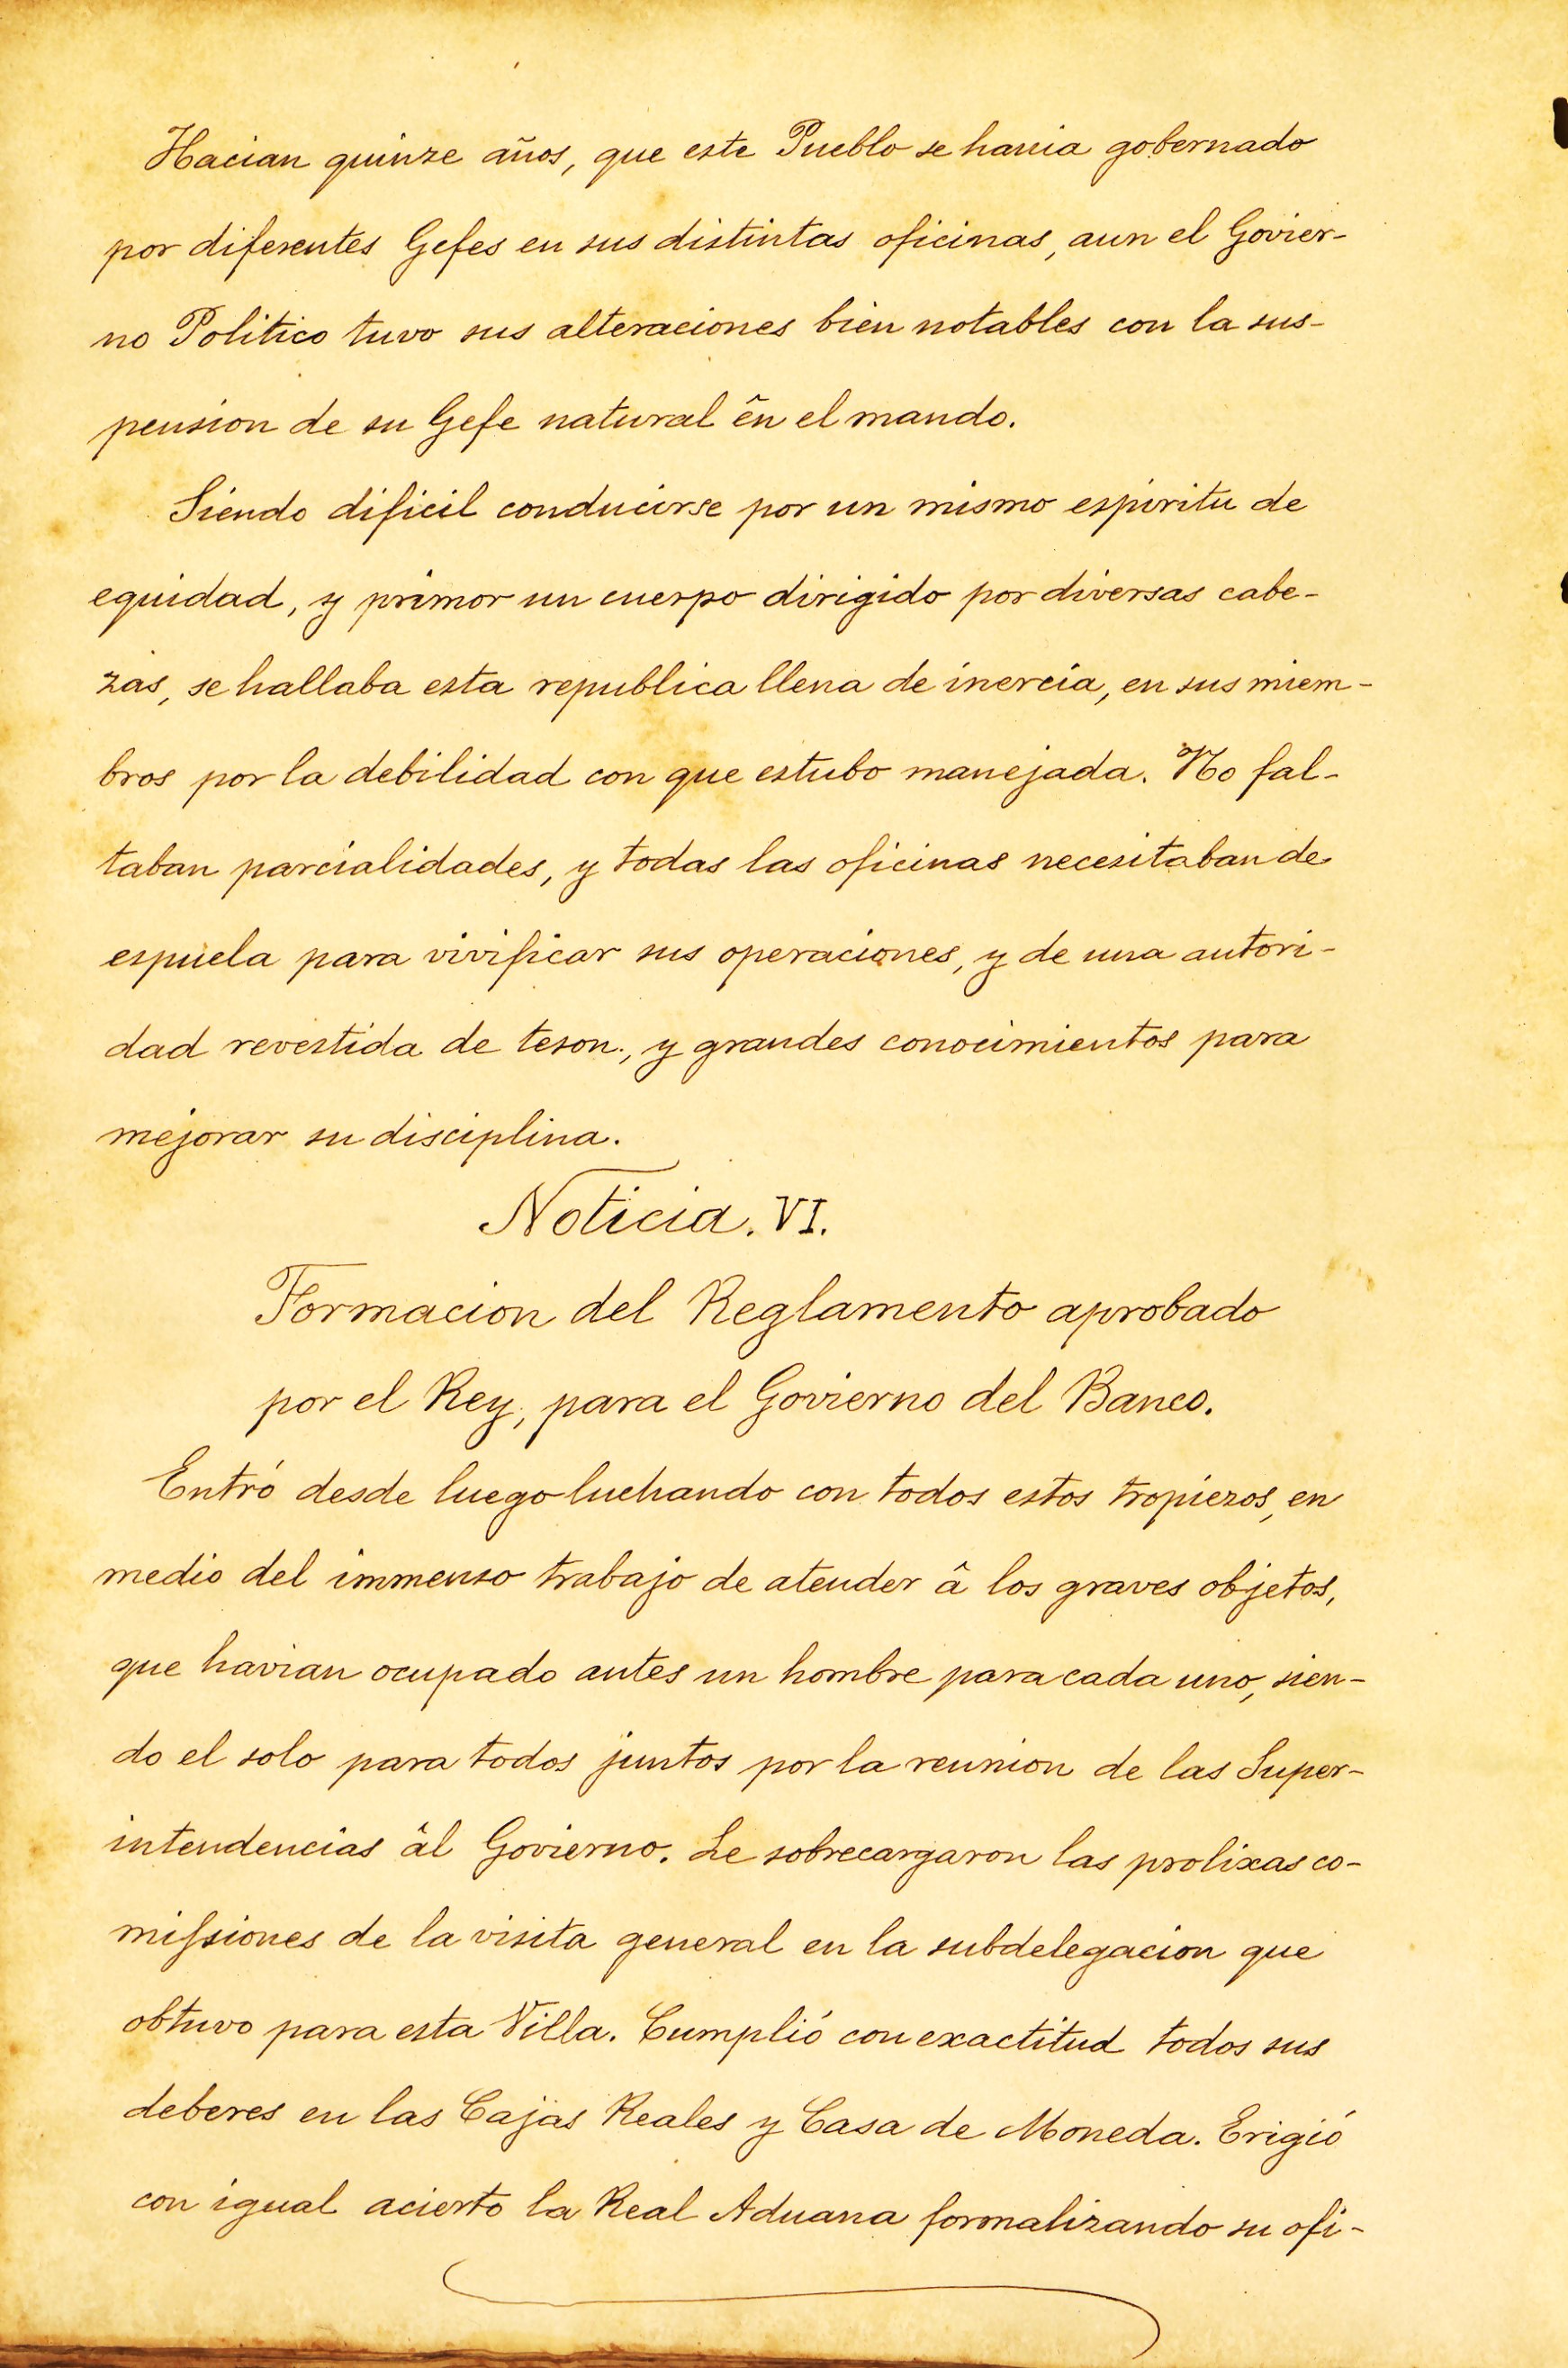 Hacian quinze años, que este Pueblo se havia gobernado
por diferentes Gefes en sus distintas oficinas, aun el Govier-
no Politico tuvo sus alteraciones bien notables con la sus-
pension de su Gefe natural ên el mando.
Siendo dificil conducirse por un mismo espiritu de
equidad, y primor un cuerpo dirigido por diversas cabe-
zas, se hallaba esta republica llena de inercia, en sus miem-
bros por la debilidad con que estubo manejada. No fal-
taban parcialidades, y todas las oficinas necesitaban de
espuela para vivificar sus operaciones, y de una autori-
dad revestida de teson., y grandes conocimientos para
mejorar su disciplina.
Noticia. VI.
Formacion del Reglamento aprobado
por el Rey, para el Govierno del Banco.
Entró desde luego luchando con todos estos tropiezos, en
medio del immenso trabajo de atender â los graves objetos,
que havian ocupado antes un hombre para cada uno, sien-
do el solo para todos juntos por la reunion de las Super-
intendencias âl Govierno. Le sobrecargaron las prolixas co-
miſsiones de la visita general en la subdelegacion que
obtuvo para esta Villa. Cumplió con exactitud todos sus
deberes en las Cajas Reales y Casa de Moneda. Erigió
con igual acierto la Real Aduana formalizando su ofi-